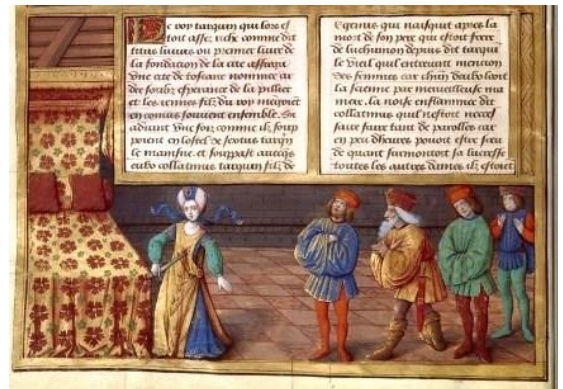 De roy tarquin qui lors es
toit assez riche comme dit
titus livius ou premier livre de
la fondacion de la cite assiega
une cite de toscane nommee ar
dee soubz esperance de la pillier
et les jennes filz du roy mengoiēt
en comūs souvent ensemble. En
adiant une
foiz comme ilz soup
poient en lostel de sextus tarqn
le mainsne. et souppast avecqs
eulx collatinus tarquin filz de
Egerius qui nasquit apres la
mort de son pere qui estoit frere
de luchumon depuis dit tarqui
le vieil quel entrent mencion
des femmes car chūn deulx looit
la sienne par merveilleuse ma
niere. la noise enflammee dit
collatinus quil nestoit necess
faire faire tant de parolles car
en peu dheures pouoit estre sceu
de quant surmontoit sa lucresse
toutes les autres dames ilz estoiēt